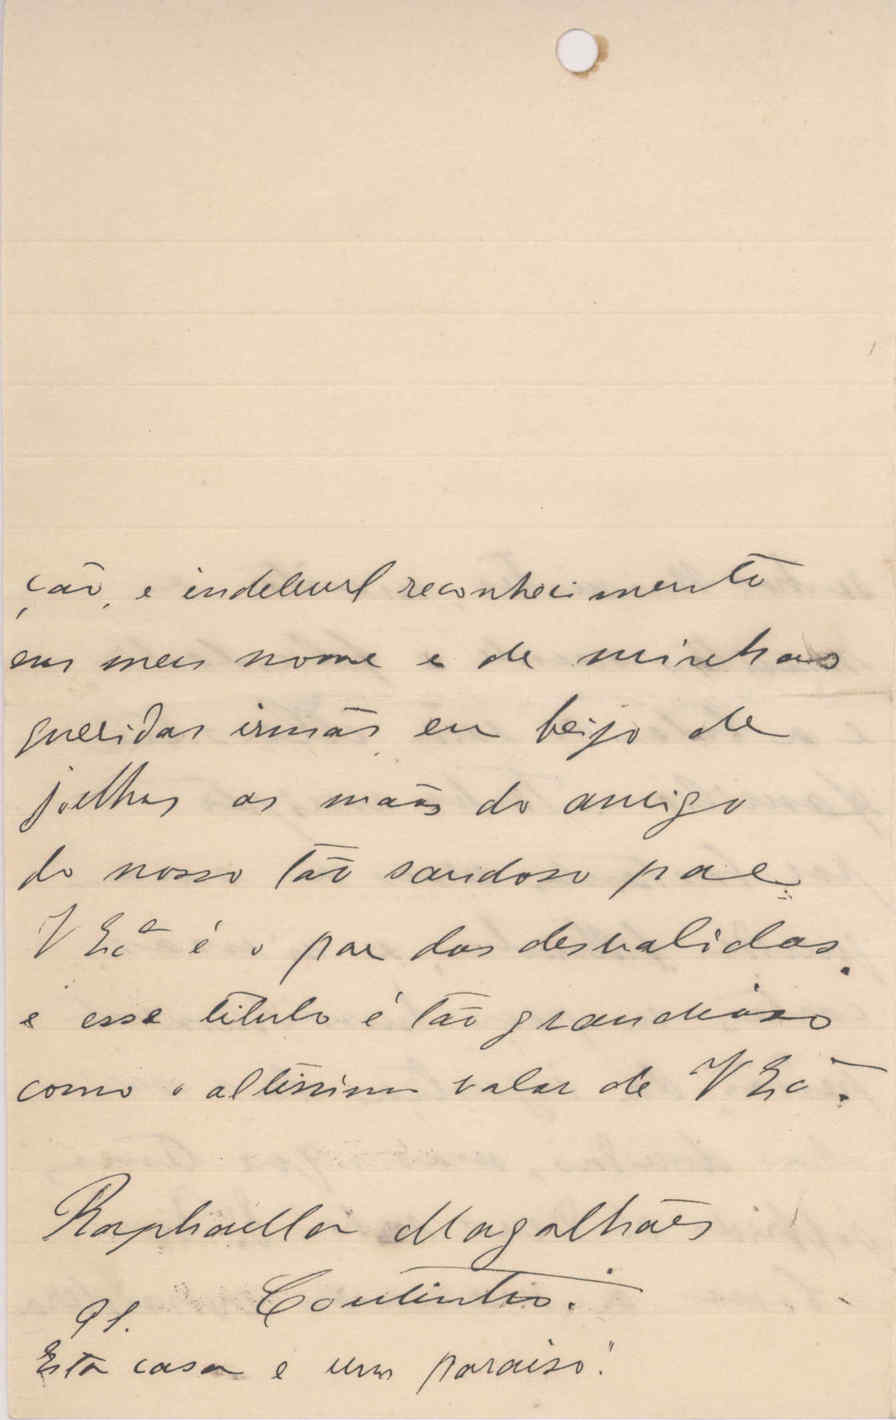 ção, e indelevel reconhecimento
em meu nome e de minhas
queridas irmãs eu beijo de
joelhos as mãos do amigo
do nosso tão saudoso pae.
V Exª é o pae dos desvalidos
e esse titulo é tão grandioso
como o altissimo valor de V Exª.
Raphaella Magalhães
Coutinho.
Esta casa e um paraiso!